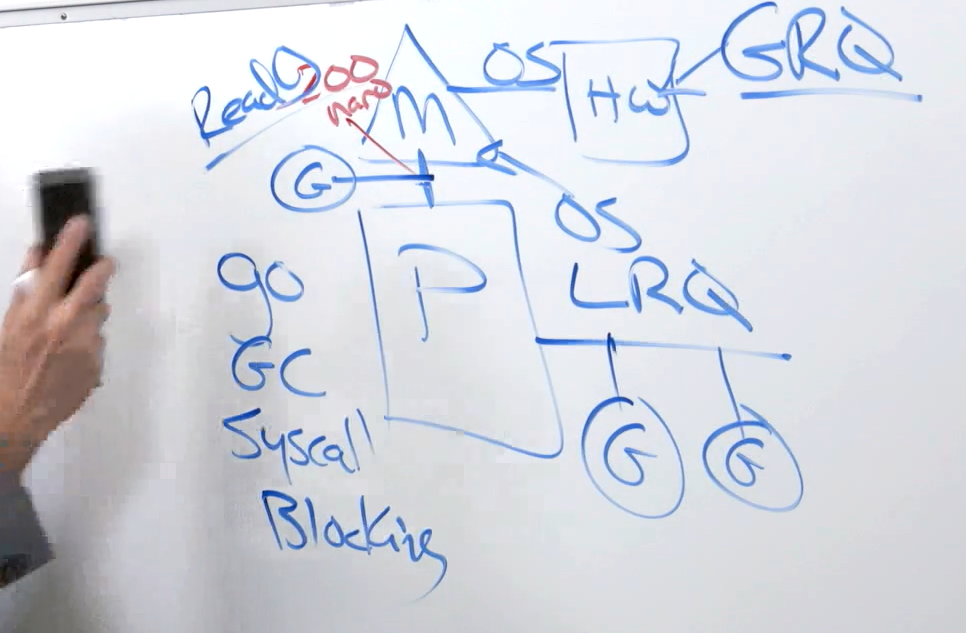 Read()
200
nano
M
OS
HW
GRQ
G
P
OS
LRQ
G
G
go
GC
Syscall
Blocking